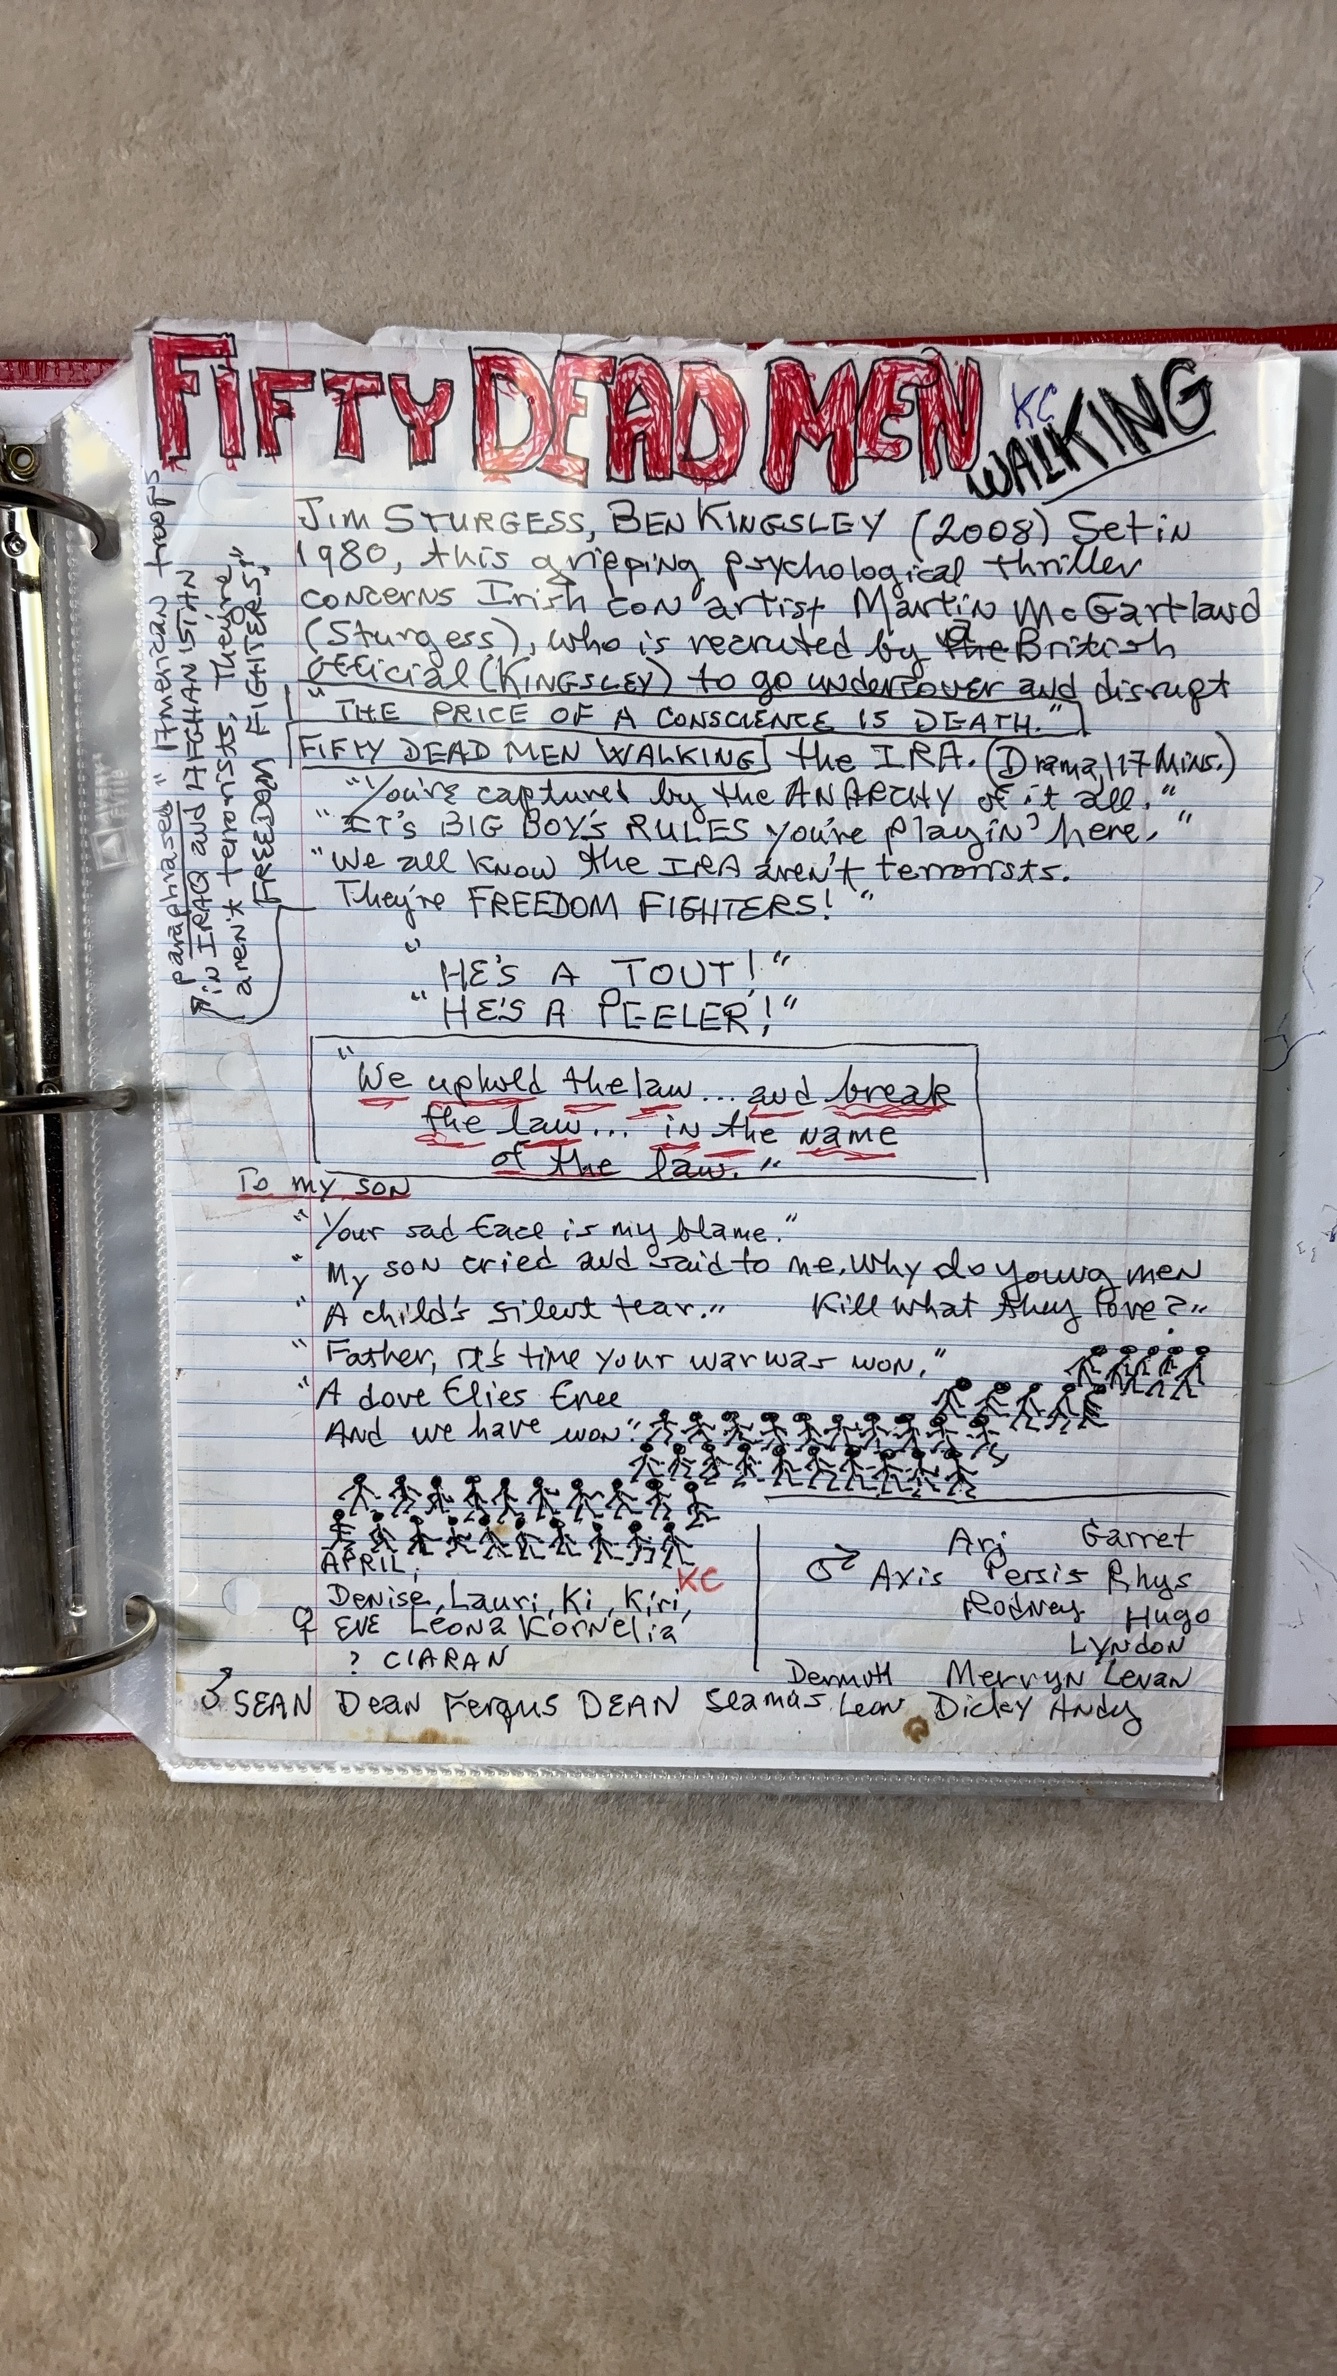 FIFTY DEAD MEN
KC
WALKING
JIM STURGESS, BEN KINGSLEY (2008) Set in
1980, this gripping psychological thriller
concerns Irish con artist Martin McGartland
(Sturgess), who is recruited by a British
Official (KINGSLEY) to go undercover and disrupt
"THE PRICE OF A CONSCIENCE IS DEATH."
FIFTY DEAD MEN WALKING the IRA. (Drama, 117 Mins.)
"You're captured by the ANARCHY of it all."
"IT'S BIG BOY'S RULES you're playin' here."
"We all know the IRA aren't terrorists.
They're FREEDOM FIGHTERS!"
"HE'S A TOUT!"
"HE'S A PEELER!"
paraphrased "American troops
in IRAQ and AFGHANISTAN
aren't terrorists, They're
FREEDOM FIGHTERS!"
"We uphold the law... and break
the law... in the name
of the law."
To my son
"Your sad face is my blame."
"My son cried and said to me, why do young men
"A child's silent tear." Kill what they love?"
"Father, it's time your war was won."
"A dove flies free
And we have won."
APRIL,
KC
Denise, Lauri, Ki, Kiri,
♀ EVE Leona Kornelia
? CIARAN
Ari Garret
♂ Axis Persis Rhys
Rodney Hugo
LYNDON
Dermott Mervyn Levan
♂ SEAN Dean Fergus DEAN Seamus Leon Dicky Andy